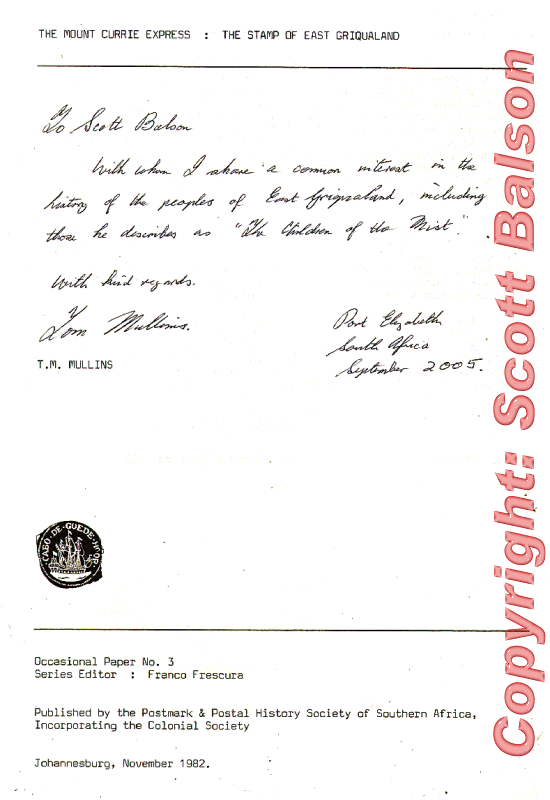 THE MOUNT CURRIE EXPRESS : THE STAMP OF EAST GRIQUALAND
To Scott Balson
With whom I share a common interest in the
history of the peoples of East Griqualand, including
those he describes as "The Children of the Mist."
With kind regards.
Tom Mullins.
T.M. MULLINS
Port Elizabeth
South Africa
September 2005.
CABO·DE·GOEDE·HOOP
Occasional Paper No. 3
Series Editor : Franco Frescura
Published by the Postmark & Postal History Society of Southern Africa,
Incorporating the Colonial Society
Johannesburg, November 1982.
Copyright: Scott Balson